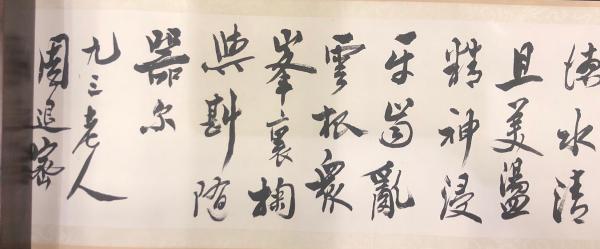 德水清
且美盪
精神浸
牙齒亂
雲根衆
峯裏掬
與斟隨
器尔
九三老人
周退密